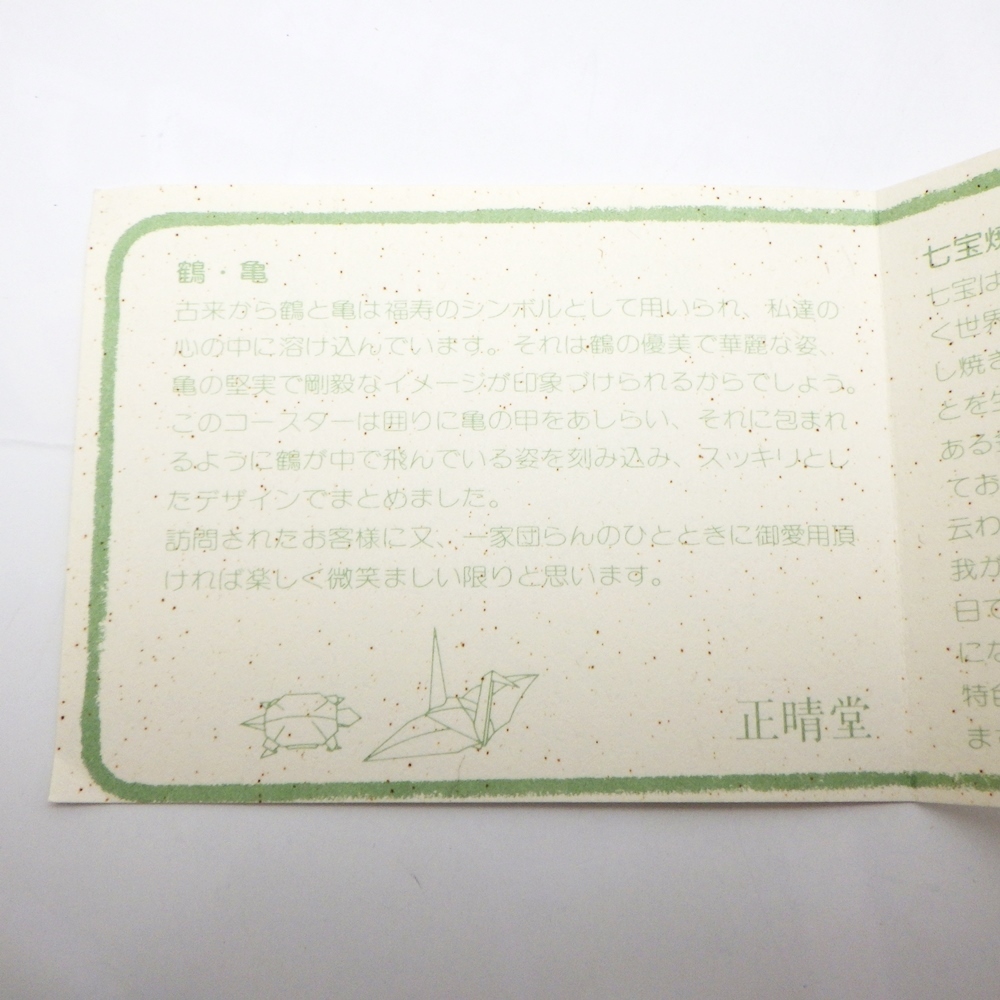 鶴・亀
古来から鶴と亀は福寿のシンボルとして用いられ、私達の
心の中に溶け込んでいます。それは鶴の優美で華麗な姿、
亀の堅実で剛毅なイメージが印象づけられるからでしょう。
このコースターは囲りに亀の甲をあしらい、それに包まれ
るように鶴が中で飛んでいる姿を刻み込み、スッキリとし
たデザインでまとめました。
訪問されたお客様に又、一家団らんのひとときに御愛用頂
ければ楽しく微笑ましい限りと思います。
正晴堂
七宝焼
七宝は
く世界
し焼き
とを生
ある
てお
云わ
我が
日で
にな
特色
ま